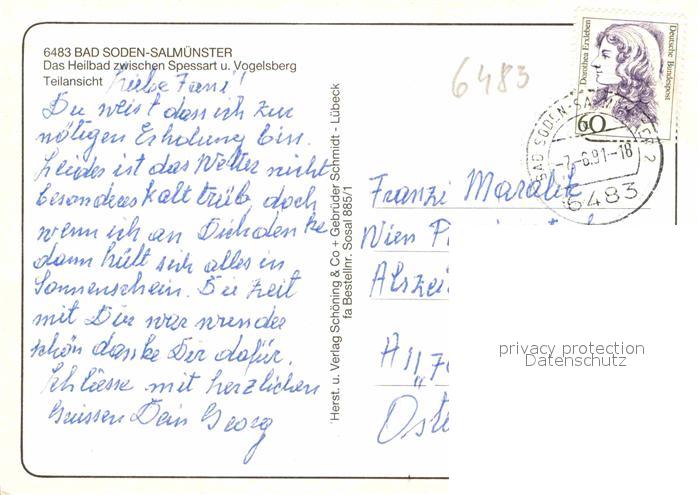 6483 BAD SODEN-SALMÜNSTER
Das Heilbad zwischen Spessart u. Vogelsberg
Teilansicht
Liebe Fani!
Du weist das ich zur
nötigen Erholung bin.
Leider ist das Wetter nicht
besonders kalt trüb, doch
wenn ich an Dich denke
dann hült sich alles in
Sonnenschein. Die Zeit
mit Dir war wunder
schön danke Dir dafür.
Schliesse mit herzlichen
Grüssen Dein Georg
Herst. u. Verlag Schöning & Co + Gebrüder Schmidt - Lübeck
fa Bestellnr. Sosal 885/1
6483
Dorothea Erxleben
Deutsche Bundespost
60
BAD SODEN-SALMÜNSTER 2
-7.-8.91-18
6483
Franzi Maralik
Wien
Alszei
Öste
privacy protection
Datenschutz